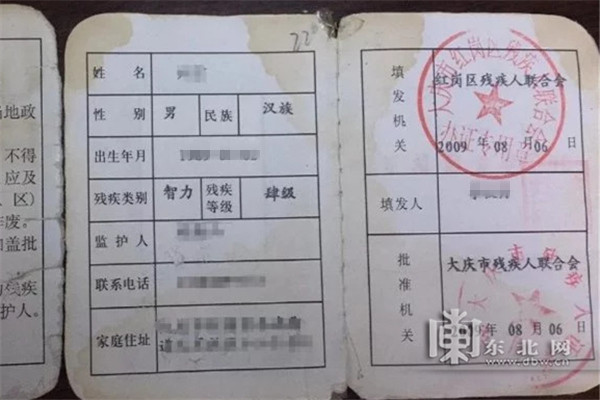 地政
不得
应及
区)
作废。
盖批
残疾
护人。
220
姓 名
性 别 男 民族 汉族
出生年月
残疾类别 智力 残疾等级 肆级
监护人
联系电话
家庭住址
填发机关 红岗区残疾人联合会
2009 年 08 月 06 日
大庆市红岗区残疾人联合会
办证专用章
填发人
批准机关 大庆市残疾人联合会
年 08 月 06 日
东北网
www.dbw.cn